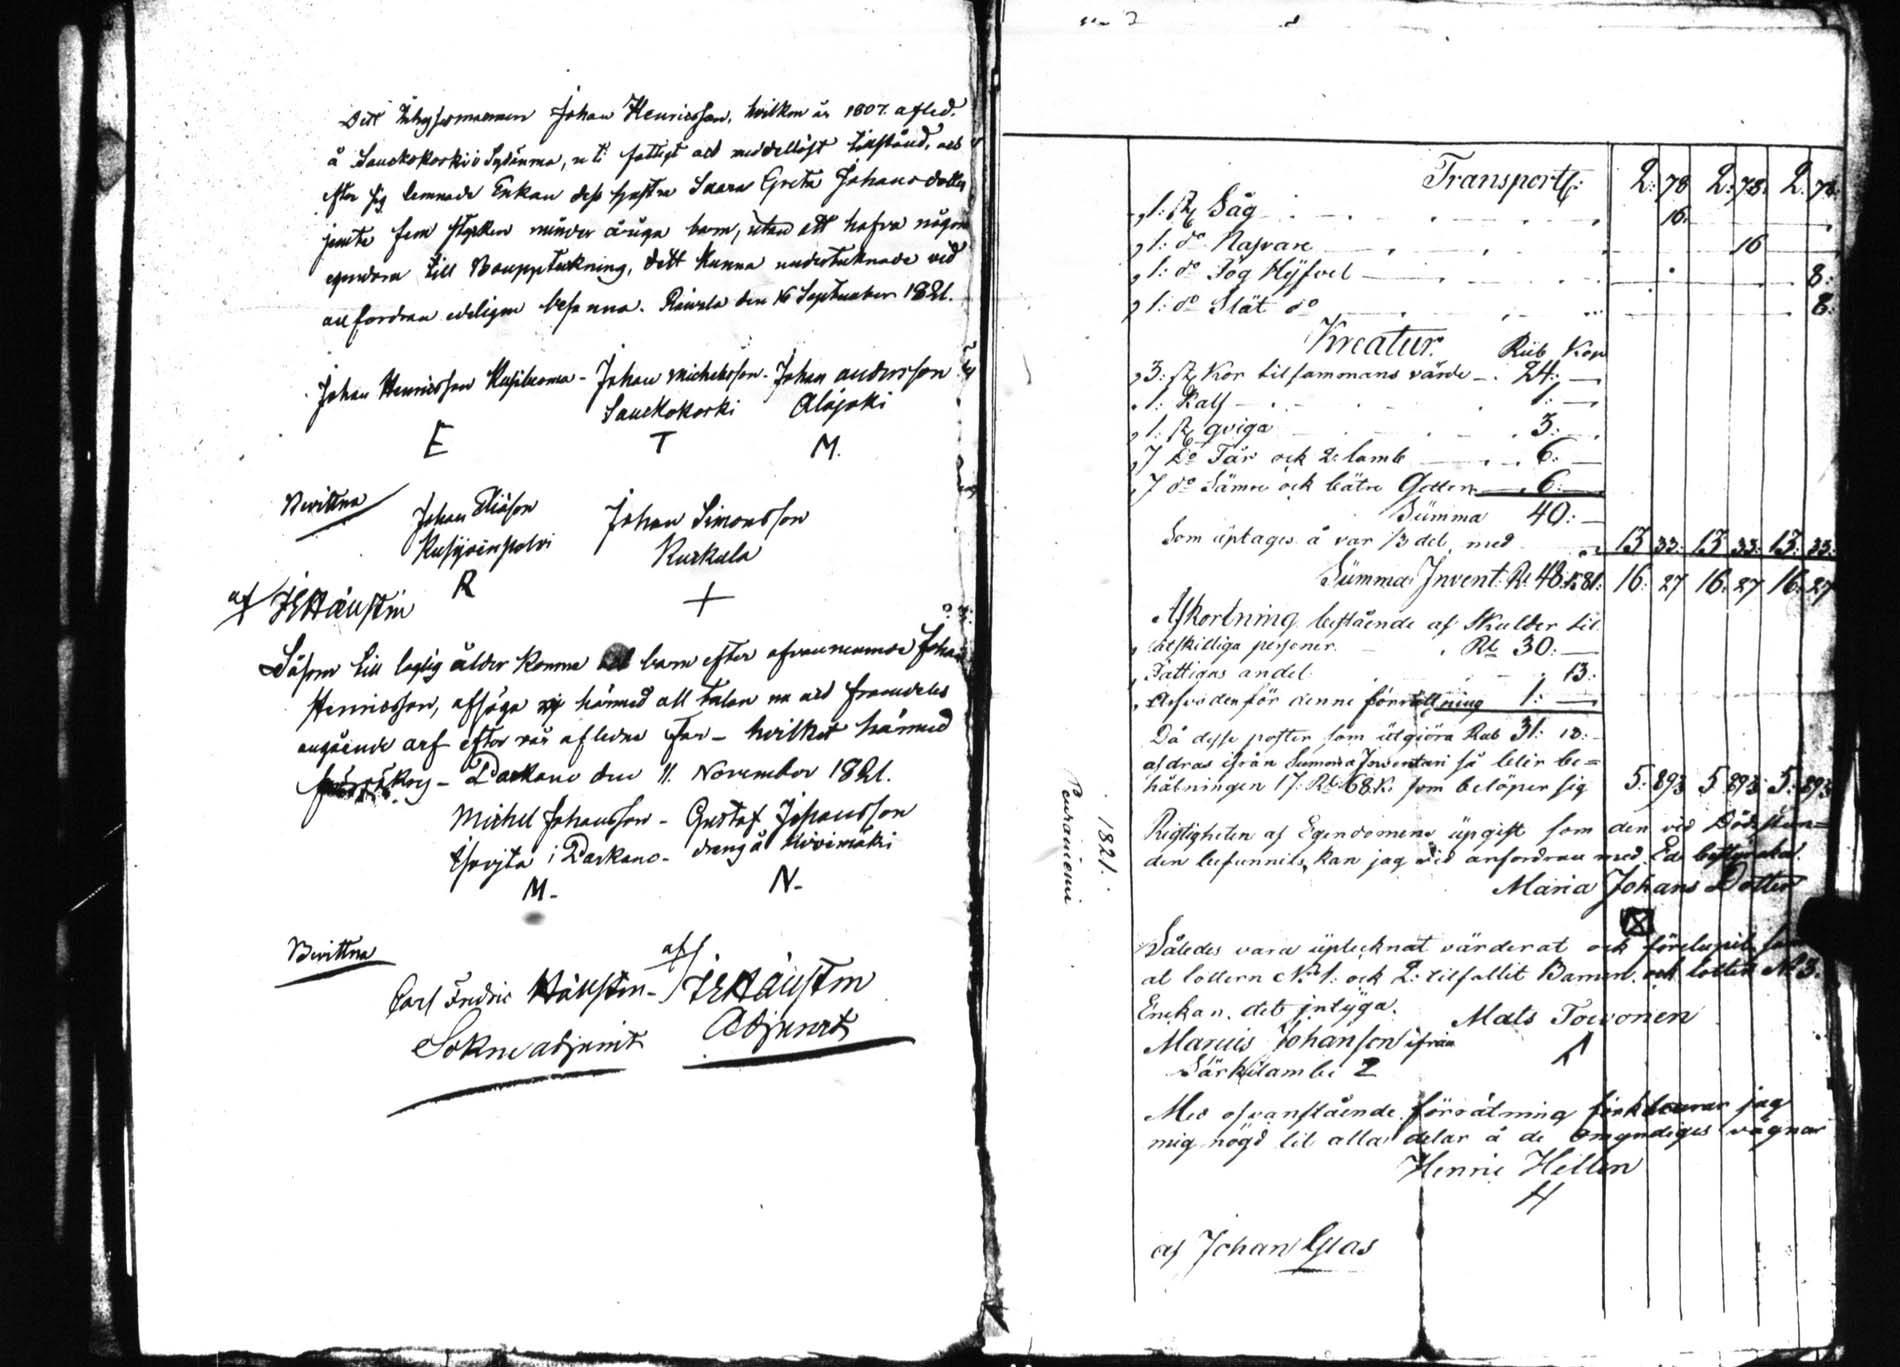 Johan Henricsson, hvilken år 1807. afled.
å Sauckokoski i Sydänma, uti fattigt och medellöst tillstånd, och
efter sig lemnade Enkan dess hustru Saara Greta Johansdotter
jemte fem stycken minder åriga barn, utan att hafva någon
egendom till Bouppteckning, dett kunna undertecknade vid
anfordran edeligen besanna. den 16 September 1821.
Johan Henricsson - Johan Michelsson - Johan andersson
Sauckokoski Alajoki
E T M.
Bevittna Johan Eliasson Johan Simonsson
Kurkala
R +
af
Såsom till laglig ålder komne barn efter ofvannemnde Johan
Henricsson, afsäga vij härmed all talan nu och framdeles
angående arf efter vår afledne Far - hvilket härmed
- Parkano den 11. November 1821.
Michel Johansson - Gustaf Johansson
i Parkano - dräng å Kivimäki
M - N -
Bevittna
Carl Fredric - af
Sokne adjunct Adjunct
Transport: 2: 78 2: 78 2: 78
1: st Såg 16
1: do Nafvare 16
1: do Fog Hyfvel 8:
1: do Slät do 8:
Kreatur. Rub Kop
3: st Kor tilsammans värde 24:
1: Kalf 1:
1: st qviga 3:
7 do Får ock 2: lamb 6:
7 do Sämre ock bätre Getter 6:
Summa 40:
Som uptages å var 1/3 del med 13 33: 13 33: 13: 33:
Summa Invent: Rb 48: K 81: 16: 27 16: 27 16: 27
Afkortning bestående af Skulder til
åtskilliga personer Rb 30:
Fattigas andel 13:
Arfvoden för denne förrättning 1:
Då desse poster som utgiöra Rub 31: 13:
afdras ifrån Summa Inventari så blir be=
hålningen 17: Rb 68 K: som belöper sig 5: 893 5: 893 5: 893
1821.
Rigtigheten af Egendomens upgift som den vid Döds stun=
den befunnits, kan jag vid anfordran med Ed bestyrcka.
Maria Johans Dotter
Således vara uptecknat värderat ock förelupit samt
at lottern No 1: ock 2: tilfallit Barnen, ock lotten No 3.
Enckan, det intyga. Mats Toivonen
Marcus Johanson ifrån
Särkilambi 2
Med ofvanstående förrätning förklarar jag
mig nögd til alla delar å de omyndiges vägnar
Henric Hellen
H
af Johan Glas